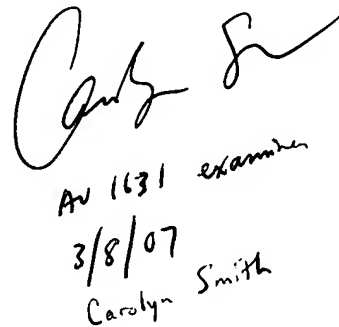 Carolyn Sm
AU 1631 examiner
3/8/07
Carolyn Smith